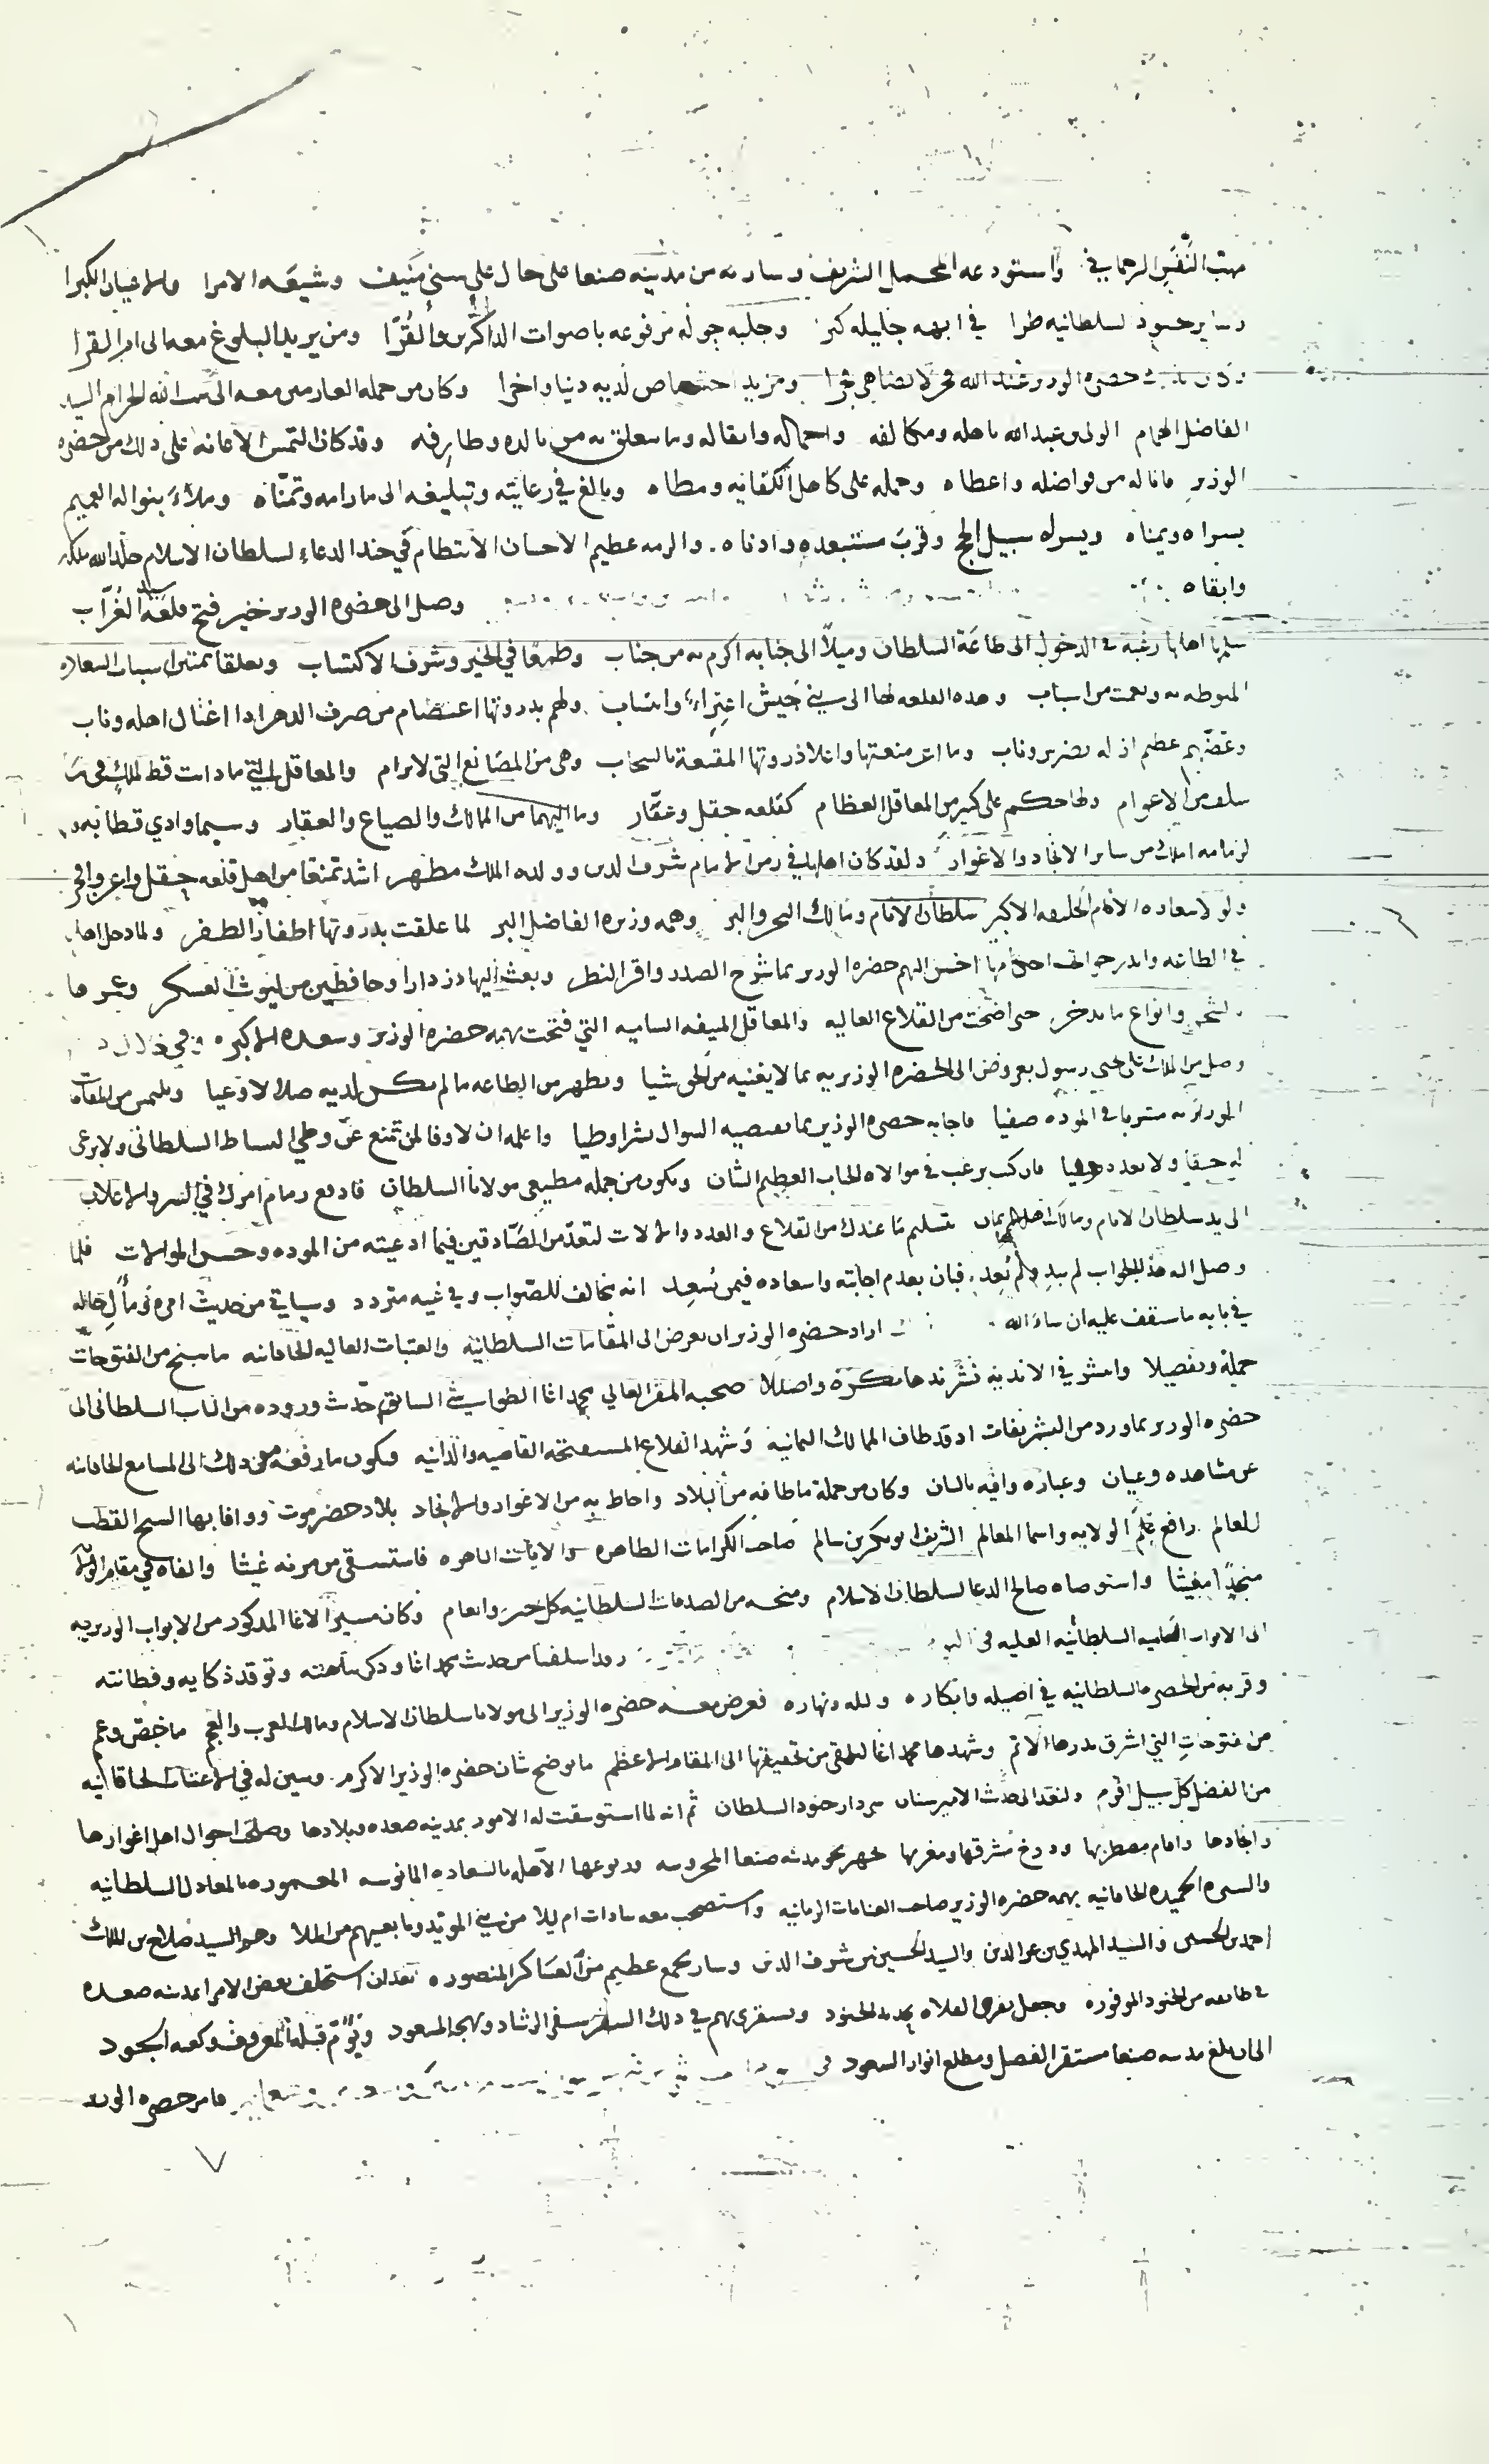 مهبّ النَّفَسِ الرحماني في واستودعه المحمل الشريف وسار به من مدينه صنعا على حال علي سنىٍ مَنيف وشيعَه الامرا والاعيان الكبرا
وساير جنود السلطانيه طرا في ابهه جليله كبرا وجلبه جوله مرفوعه باصوات الذاكرين والقُرّا ومن يريد البلوغ معه الى ام القرا
وكان بذلك حضره الوزير عند الله فخر لا يضاهى فخرا ومزيد اختصاص لديه دنيا واخرا وكان من جمله العازمين معه الى بيت الله الحرام السيد
الفاضل الهمام الولى بن عبد الله باهله ومكالفه واحماله واثقاله وما يتعلق به من تالده وطارفه وقد كان التمس الاعانه على ذلك من حضره
الوزير فاناله من فواضله واعطاه وحمله على كاهل الكفايه ومطاه وبالغ في رعايته وتبليغه الى ما رامه وتمنّاه وملأ بنواله العميم
يسراه ويمناه ويسر له سبيل الحج وقرب مستبعده وادناه والزمه عظيم الاحسان الانتظام في جند الدعاء لسلطان الاسلام خلد الله ملكه
وابقاه وصل الى حضره الوزير خبر فتح قلعة الغُرّاب
سلمها اهلها رغبه في الدخول الى طاعَة السلطان وميلاً الى جنابه اكرم به من جناب وطمعًا في الخير وشرف الاكتساب وتعلقا بمتين اسباب السعاده
المنوطه به ونعمت من اسباب وهذه القلعه لها الى بني حَبيش اعتِزاءٌ وانتساب ولهم بذروتها اعتصام من صرف الدهر اذا اغتال اهله وناب
وعَضّهم عظيم اذ له بضرس وناب وما اعز منعتها واعلا ذروتها المقنعة بالسحاب وهى من المصَانع التى لا ترام والمعاقل التي ما دانت قط لملك فيما
سلف من الاعوام ولها حكم على كثير من المعاقل العظام كقلعه حقل وعقّار وما اليهما من الممالك والضياع والعقار وسيما وادي قطابه
لزمامه املاك من ساير الانجاد والاغوار ولقد كان اهلها في زمن الامام شرف الدين وولده الملك مطهر اشد تمنعًا من اهل قلعه حقل واعز وافخر
ولولا سعاده الامام الخليفه الاكبر سلطان الانام ومالك البحر والبر وهمه وزيره الفاضل البر لما علقت بذروتها اظفار الظفر ولما دخل اهلها
في الطاعه احسن اليهم حضره الوزير بما شرح الصدر واقر النظر وبعث اليها دزدارا وحافظين من ليوث العسكر
وانواع ما يدخر حتى اضحت من القلاع العاليه والمعاقل المنيفه الساميه التي فتحت بهمه حضره الوزير وسعده الاكبر وفي خلال
وصل من الملك على يحيى رسول بعروض الى الحضره الوزيريه بما لا يغنيه من الحق شيا ويظهر من الطاعه ما لم يكن لديه ويلتمس من المقامات
الوزيريه مشربا في الموده صفيا فاجابه حضره الوزير بما يقتضيه السوال نشرا وطيا واعلمه ان لا وفا لمن تمنع عن وطي البساط السلطاني ولا يرعى
له حقا ولا يعد فان كنت ترغب في موالاه الجناب العظيم الشان وتكون من جمله مطيعي مولانا السلطان فادفع زمام امرك في السر والاعلان
الى يد سلطان الانام ومالك اهل الايمان بتسليم ما عندك من القلاع والعدد والالات لتعدّ من الصّادقين فيما ادعيته من الموده وحسن الموالات فلما
وصل اليه هذا الجواب لم يبدِ ولم يُعِد فبان بعدم اجابته واسعاده فيمن يُسعِد انه مخالف للصّواب وفي غيه متردد وسياتي من حديث امره ومآلِ حاله
في بابه ما ستقف عليه ان شاء الله اراد حضره الوزير ان يعرض الى المقامات السلطانيه والعتبات العاليه الخاقانيه ما سنح من الفتوحات
جملة وتفصيلا وينشر في الانديه نَشْر ندها بكرة واصيلا صحبه المقر العالي محمد اغا الطواشي السابق حَديث وروده من الباب السلطاني الى
حضره الوزير بما ورد من التشريفات اذ قد طاف الممالك اليمانيه وشهد القلاع المستفتحه القاصيه والدانيه فيكون ما رفعه من ذلك الى المسامع الخاقانيه
عن مشاهده وعيان وعباره وافيه بالبيان وكان من جملة ما طافه من البلاد واحاط به من الاغوار والانجاد بلاد حضرموت ووافا بها الشيخ القطب
العالم رافع عَلَم الولايه واسما المعالم الشريف ابو بكر بن سالم صاحب الكرامات الظاهره والايات الباهره فاستسقى من مزنه غيثا والفاه في مقام الولايه
منجدًا مغيثا واستوصاه صالح الدعا لسلطان الاسلام ومنحه من الصدقات السلطانيه كل خير وانعام وكان مسير الاغا المذكور من الابواب الوزيريه
الى الابواب العاليه السلطانيه العليه في وقد اسلفنا من حديث محمد اغا وذكر نباهته وتوقد ذكايه وفطانته
وقربه من الحضره السلطانيه في اصيله وابكاره وليله ونهاره فعرض معه حضره الوزير الى مولانا سلطان الاسلام ومالك العرب والعجم ما خصّ وعم
من فتوحاتِ التي اشرق بدرها الاتم وشهدها محمد اغا ليلقي من تحقيقها الى المقام الاعظم ما يوضح شان حضره الوزير الاكرم ويبين له في الاعتناءات الخاقانيه
من الفضل كل سبيل اقوم ولنعد الى حديث الامير سنان سردار جنود السلطان ثم انه لما استوسقت له الامور بمدينه صعده وبلادها وصلحت احوال اهل اغوارها
وانجادها واقام ودوخ مشرقها ومغربها تجهز نحو مدينه صنعا المحروسه وربوعها الآهله بالسعاده المانوسه المعموره بالمعادل السلطانيه
والسيره الحميده الخاقانيه بهمه حضره الوزير صاحب العنايات الربانيه واستصحب معه سادات ام ليلا من بني المويد وتابعيهم من الملا وهم السيد صلاح بن الملك
احمد بن الحسين والسيد المهدي بن عز الدين والسيد الحسين بن شرف الدين وسار بجمع عظيم من العسَاكر المنصوره بعد ان استخلف بعض الامرا بمدينه صعده
في طايفه من الجنود الموفوره وجعل يفرى الفلاه بهذه الجنود ويستقرى بهم في ذلك السفر سفر الرشاد ونهج السعود ويؤمّ قبلة المعروف وكعبه الجود
الى ان بلغ مدينه صنعا مستقر الفضل ومطلع انوار السعود في فامر حضره الوزير